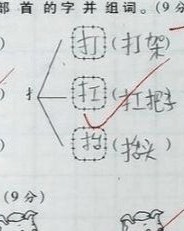 部首的字并组词。(9分
扌
打(打架)
扛(扛把手
抬(抬头)
(9分)